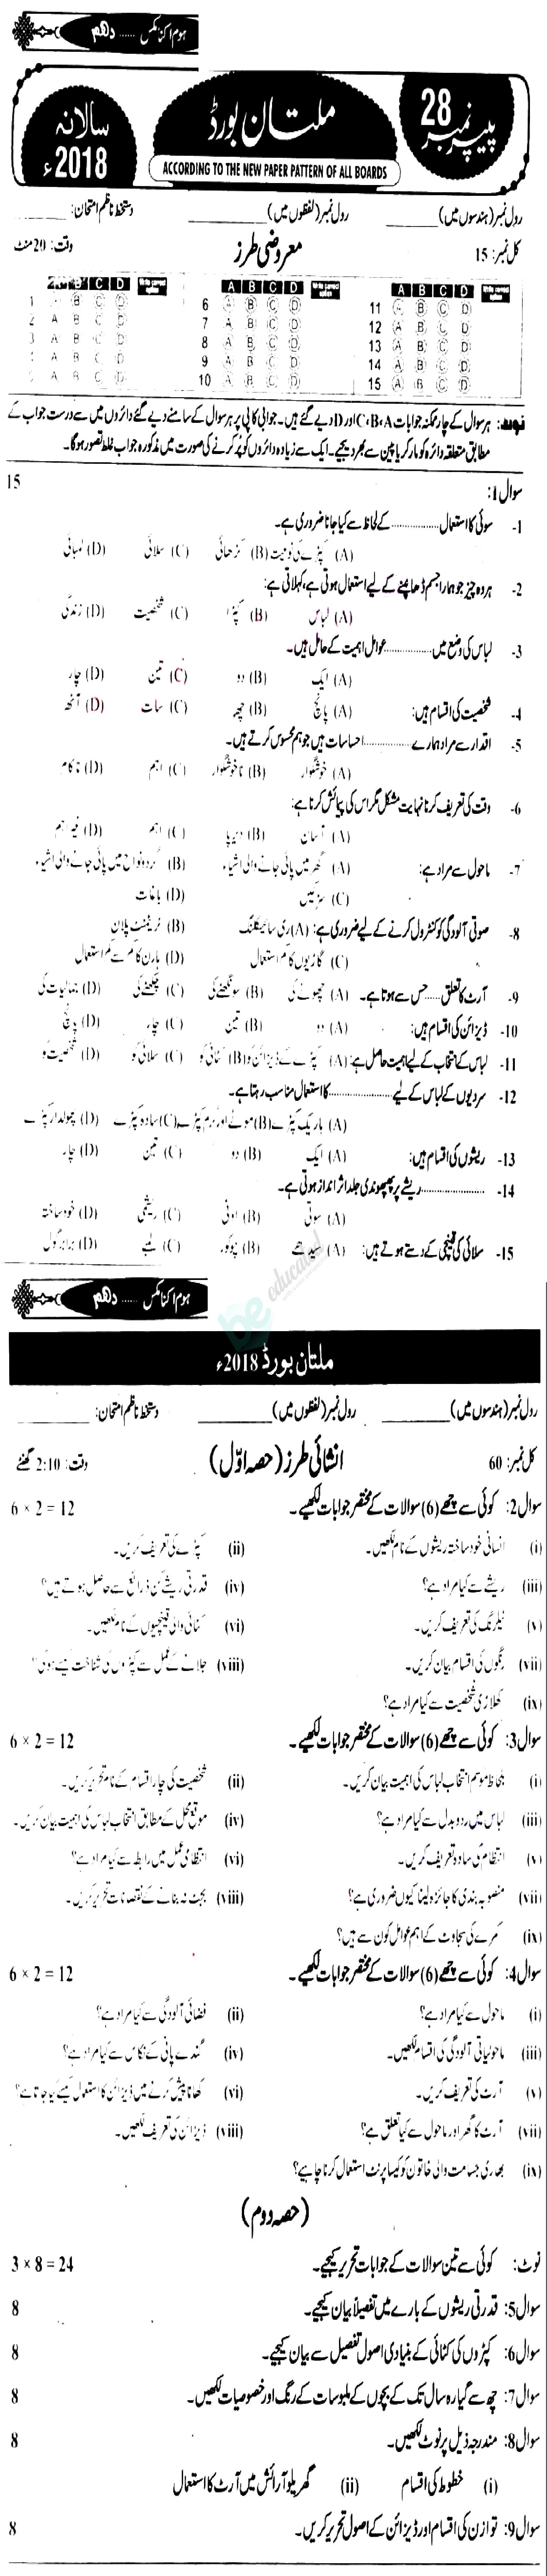 ہوم اکنامکس ...... دہم
پیپر نمبر 28
ملتان بورڈ
سالانہ 2018ء
ACCORDING TO THE NEW PAPER PATTERN OF ALL BOARDS
رول نمبر (ہندسوں میں) ________ رول نمبر (لفظوں میں) ________ دستخط ناظم امتحان: ________
کل نمبر: 15 معروضی طرز وقت: 20 منٹ
A B C D
1 A B C D
2 A B C D
3 A B C D
A B C D
A B C D
A B C D
6 A B C D
7 A B C D
8 A B C D
9 A B C D
10 A B C D
A B C D
11 A B C D
12 A B C D
13 A B C D
14 A B C D
15 A B C D
نوٹ: ہر سوال کے چار ممکنہ جوابات C،B،A اور D دیے گئے ہیں۔ جوابی کاپی پر ہر سوال کے سامنے دیے گئے دائروں میں سے درست جواب کے
مطابق متعلقہ دائرہ کو مارکر یا پین سے بھر دیجیے۔ ایک سے زیادہ دائروں کو پُر کرنے کی صورت میں مذکورہ جواب غلط تصور ہوگا۔
سوال 1: 15
1- سوئی کا استعمال .............. کے لحاظ سے کیا جانا ضروری ہے۔
(A) کپڑے کی نوعیت (B) کڑھائی (C) سلائی (D) لمبائی
2- ہر وہ چیز جو ہمارا جسم ڈھانپنے کے لیے استعمال ہوتی ہے، کہلاتی ہے:
(A) لباس (B) کپڑا (C) شخصیت (D) زندگی
3- لباس کی وضع میں .............. عوامل اہمیت کے حامل ہیں۔
(A) ایک (B) دو (C) تین (D) چار
4- شخصیت کی اقسام ہیں: (A) پانچ (B) چھ (C) سات (D) آٹھ
5- اقدار سے مراد ہمارے .............. احساسات ہیں جو ہم محسوس کرتے ہیں۔
(A) خوشگوار (B) ناخوشگوار (C) اہم (D) ناکام
6- وقت کی تعریف کرنا نہایت مشکل مگر اس کی پیمائش کرنا ہے:
(A) آسان (B) دیرپا (C) اہم (D) غیر اہم
7- ماحول سے مراد ہے: (A) گھر میں پائی جانے والی اشیاء (B) گردونواح میں پائی جانے والی اشیاء
(C) سڑکیں (D) باغات
8- صوتی آلودگی کو کنٹرول کرنے کے لیے ضروری ہے: (A) ری سائیکلنگ (B) ٹریٹمنٹ پلان
(C) گاڑیوں کا کم استعمال (D) ہارن کا کم سے کم استعمال
9- آرٹ کا تعلق ...... حس سے ہوتا ہے۔ (A) چھونے کی (B) سونگھنے کی (C) چکھنے کی (D) جمالیات کی
10- ڈیزائن کی اقسام ہیں: (A) دو (B) تین (C) چار (D) پانچ
11- لباس کے انتخاب کے لیے اہمیت حاصل ہے: (A) کپڑے کے ڈیزائن کو (B) کٹائی کو (C) سلائی کو (D) شخصیت کو
12- سردیوں کے لباس کے لیے .............. کا استعمال مناسب رہتا ہے۔
(A) باریک کپڑے (B) موٹے اور گرم کپڑے (C) سادہ کپڑے (D) پھولدار کپڑے
13- ریشوں کی اقسام ہیں: (A) ایک (B) دو (C) تین (D) چار
14- .............. ریشے پر پھپھوندی جلد اثر انداز ہوتی ہے۔
(A) سوتی (B) اونی (C) ریشمی (D) خود ساختہ
15- سلائی کی قینچی کے دستے ہوتے ہیں: (A) سیدھے (B) چوکور (C) لمبے (D) برابر گول
be educated
ہوم اکنامکس ...... دہم
ملتان بورڈ 2018ء
رول نمبر (ہندسوں میں) ________ رول نمبر (لفظوں میں) ________ دستخط ناظم امتحان: ________
کل نمبر: 60 انشائی طرز (حصہ اوّل) وقت: 2:10 گھنٹے
سوال 2: کوئی سے چھے (6) سوالات کے مختصر جوابات لکھیے۔ 6 × 2 = 12
(i) انسانی خود ساختہ ریشوں کے نام لکھیں۔ (ii) کپڑے کی تعریف کریں۔
(iii) ریشے سے کیا مراد ہے؟ (iv) قدرتی ریشے کن ذرائع سے حاصل ہوتے ہیں؟
(v) ٹیلرنگ کی تعریف کریں۔ (vi) کٹائی والی قینچیوں کے نام لکھیں۔
(vii) رنگوں کی اقسام بیان کریں۔ (viii) جلانے کے عمل سے کپڑوں کی شناخت کیسے ہو گی؟
(ix) کھلاڑی شخصیت سے کیا مراد ہے؟
سوال 3: کوئی سے چھے (6) سوالات کے مختصر جوابات لکھیے۔ 6 × 2 = 12
(i) بلحاظ موسم انتخاب لباس کی اہمیت بیان کریں۔ (ii) شخصیت کی چار اقسام کے نام تحریر کریں۔
(iii) لباس میں ردوبدل سے کیا مراد ہے؟ (iv) موقع محل کے مطابق انتخاب لباس کی اہمیت بیان کریں۔
(v) انتظام کی سادہ تعریف کریں۔ (vi) انتظامی عمل میں رابطہ سے کیا مراد ہے؟
(vii) منصوبہ بندی کا جائزہ لینا کیوں ضروری ہے؟ (viii) بجٹ نہ بنانے کے نقصانات تحریر کریں۔
(ix) کمرے کی سجاوٹ کے اہم عوامل کون سے ہیں؟
سوال 4: کوئی سے چھے (6) سوالات کے مختصر جوابات لکھیے۔ 6 × 2 = 12
(i) ماحول سے کیا مراد ہے؟ (ii) فضائی آلودگی سے کیا مراد ہے؟
(iii) ماحولیاتی آلودگی کی اقسام لکھیں۔ (iv) گندے پانی کے نکاس سے کیا مراد ہے؟
(v) آرٹ کی تعریف کریں۔ (vi) کھانا پیش کرنے میں ڈیزائن کا استعمال کیسے کیا جاتا ہے؟
(vii) آرٹ کا گھر اور ماحول سے کیا تعلق ہے؟ (viii) ڈیزائن کی تعریف لکھیں۔
(ix) بھاری جسامت والی خاتون کو کیسا پرنٹ استعمال کرنا چاہیے؟
(حصہ دوم)
نوٹ: کوئی سے تین سوالات کے جوابات تحریر کیجیے۔ 3 × 8 = 24
سوال 5: قدرتی ریشوں کے بارے میں تفصیلاً بیان کیجیے۔ 8
سوال 6: کپڑوں کی کٹائی کے بنیادی اصول تفصیل سے بیان کیجیے۔ 8
سوال 7: چھ سے گیارہ سال تک کے بچوں کے ملبوسات کے رنگ اور خصوصیات لکھیں۔ 8
سوال 8: مندرجہ ذیل پر نوٹ لکھیں۔ 8
(i) خطوط کی اقسام (ii) گھریلو آرائش میں آرٹ کا استعمال
سوال 9: توازن کی اقسام اور ڈیزائن کے اصول تحریر کریں۔ 8